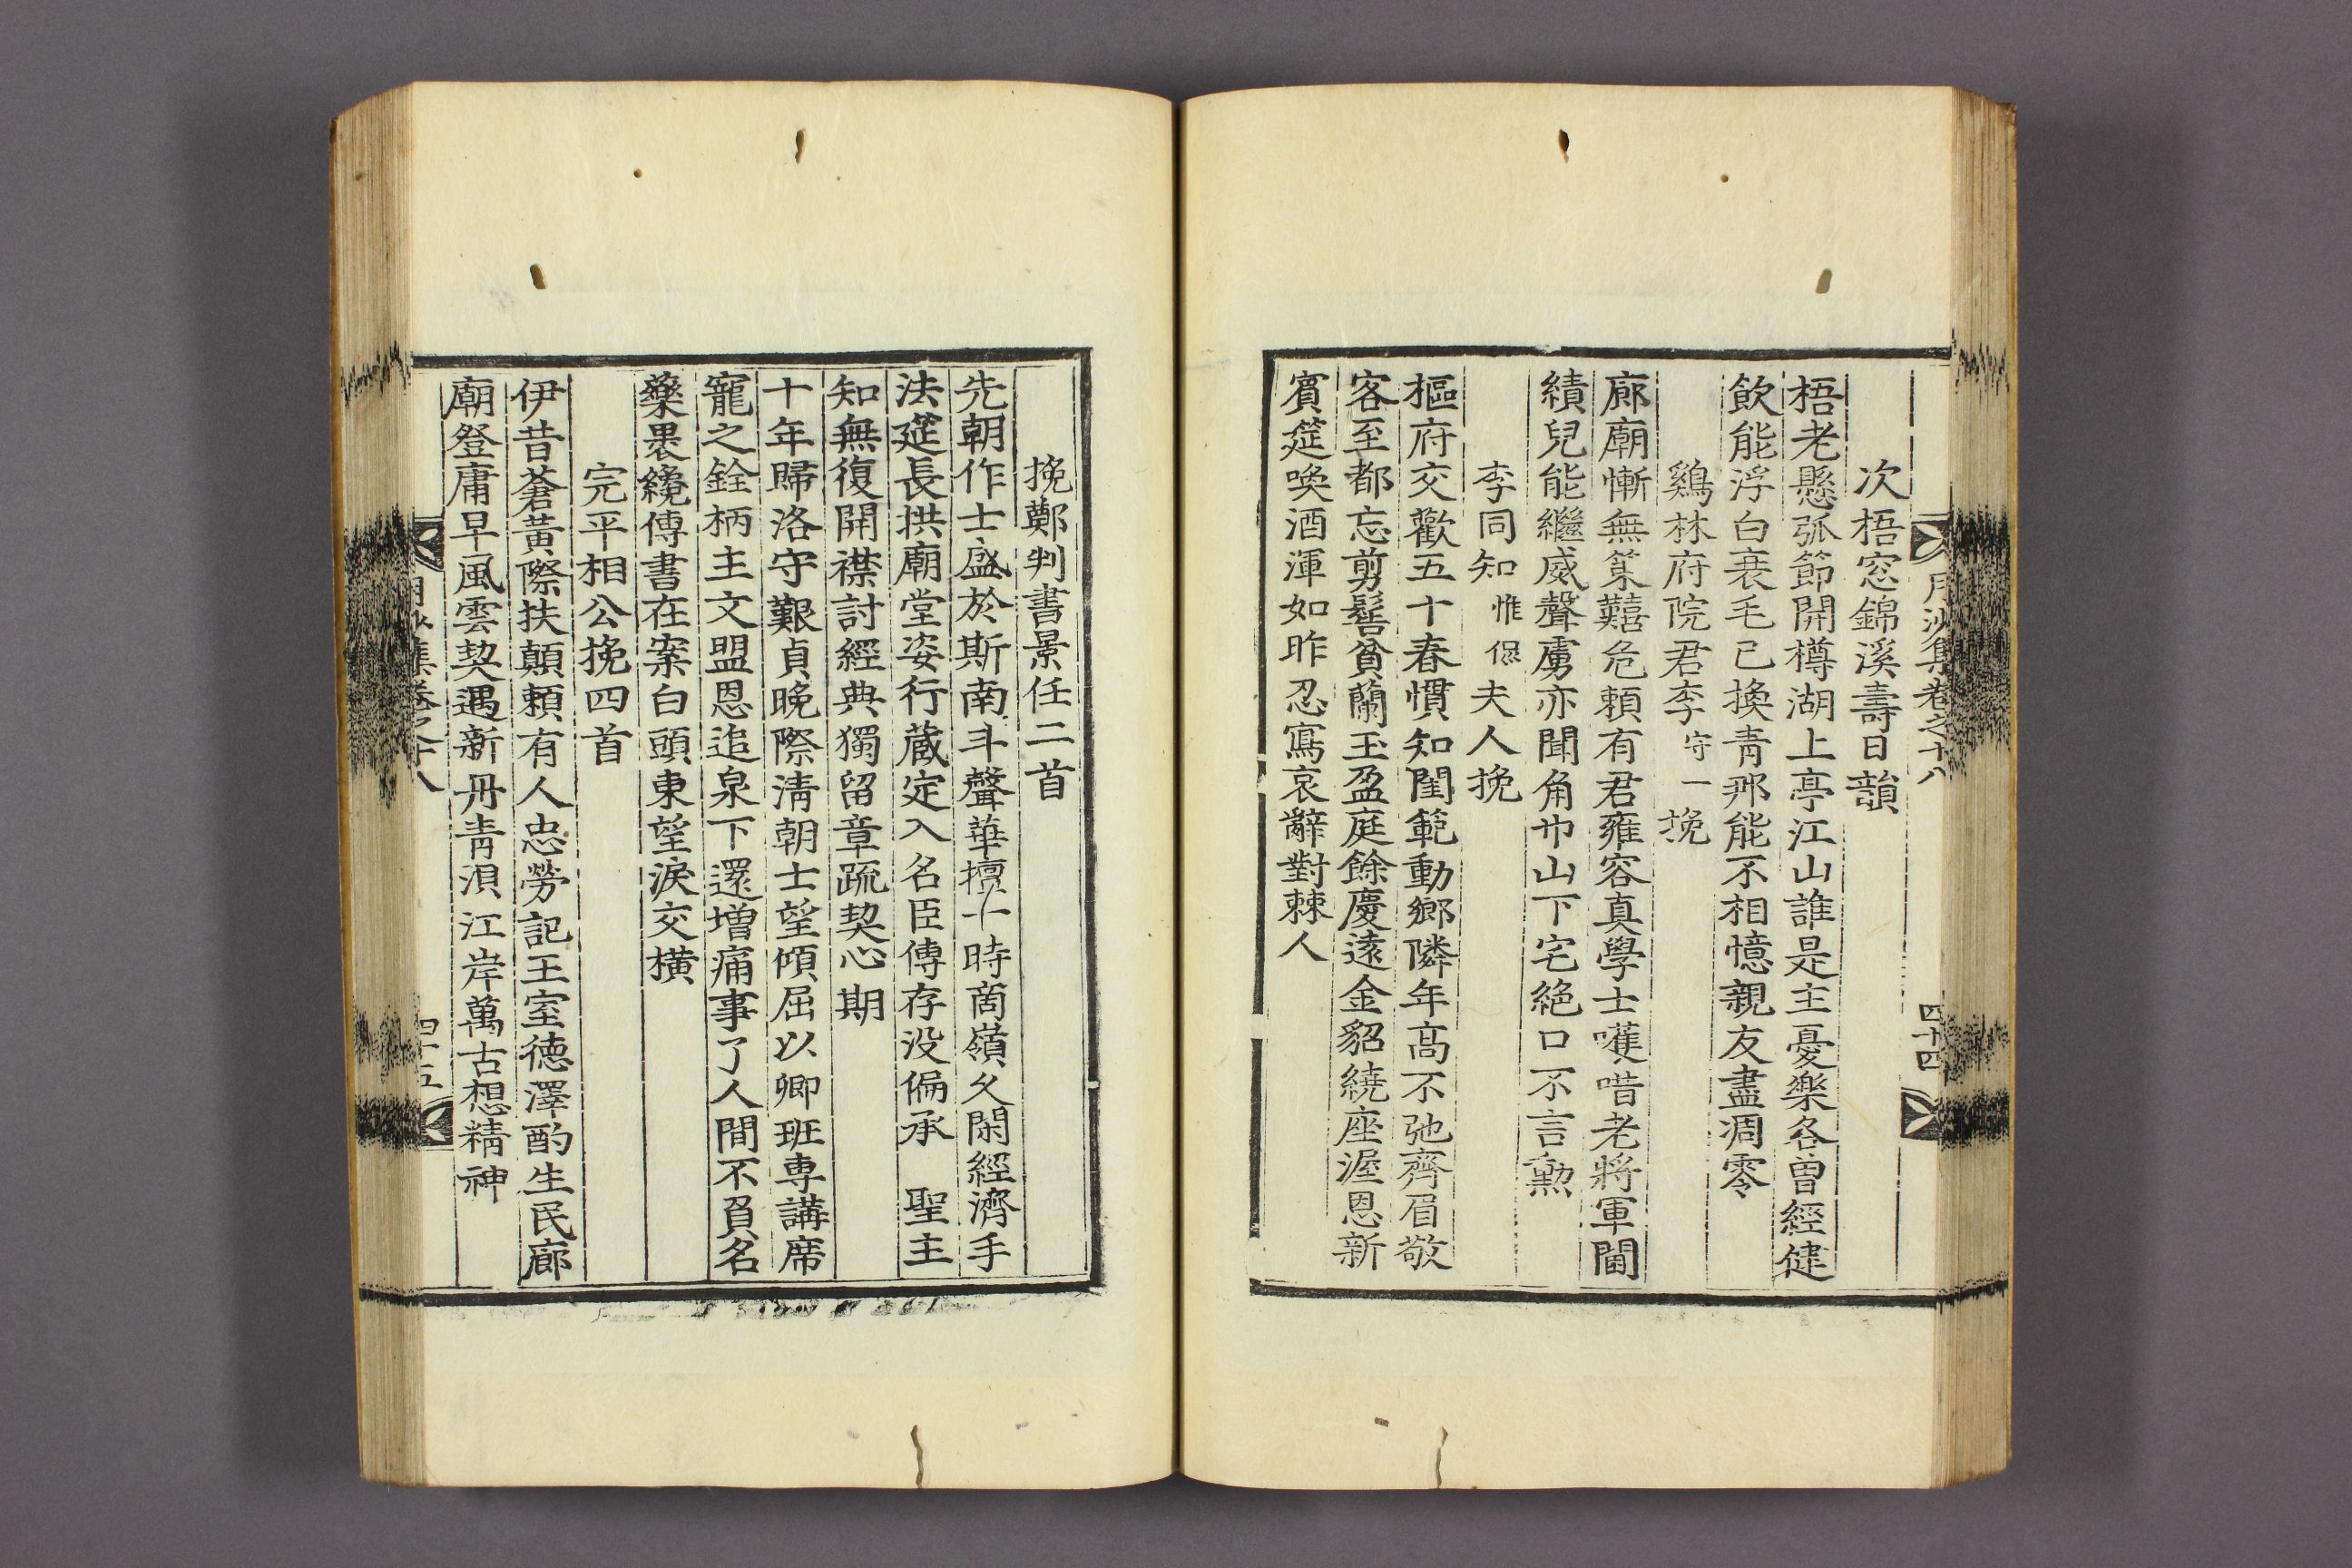 月沙集卷之十八
四十四
次梧窓錦溪壽日韻
梧老懸弧節開樽湖上亭江山誰是主憂樂各曾經健
飮能浮白衰毛已換靑那能不相憶親友盡凋零
鷄林府院君李守一挽
廊廟慚無策艱危賴有君雍容真學士嚄唶老將軍閫
績兒能繼威聲虜亦聞角巾山下宅絶口不言勳
李同知惟侃夫人挽
樞府交歡五十春慣知閨範動鄕隣年高不弛齊眉敬
客至都忘剪髻貧蘭玉盈庭餘慶遠金貂繞座渥恩新
賓筵喚酒渾如昨忍寫哀辭對棘人
挽鄭判書景任二首
先朝作士盛於斯南斗聲華擅一時啇嶺久閑經濟手
法筵長拱廟堂姿行藏定入名臣傳存没偏承 聖主
知無復開襟討經典獨留章疏契心期
十年歸洛守艱貞晩際淸朝士望傾屈以卿班専講席
寵之銓柄主文盟恩追泉下還增痛事了人間不負名
藥褁纔傳書在案白頭東望淚交橫
完平相公挽四首
伊昔蒼黃際扶顚賴有人忠勞記王室德澤酌生民廊
廟登庸早風雲契遇新丹靑浿江岸萬古想精神
月沙集卷之十八
四十五